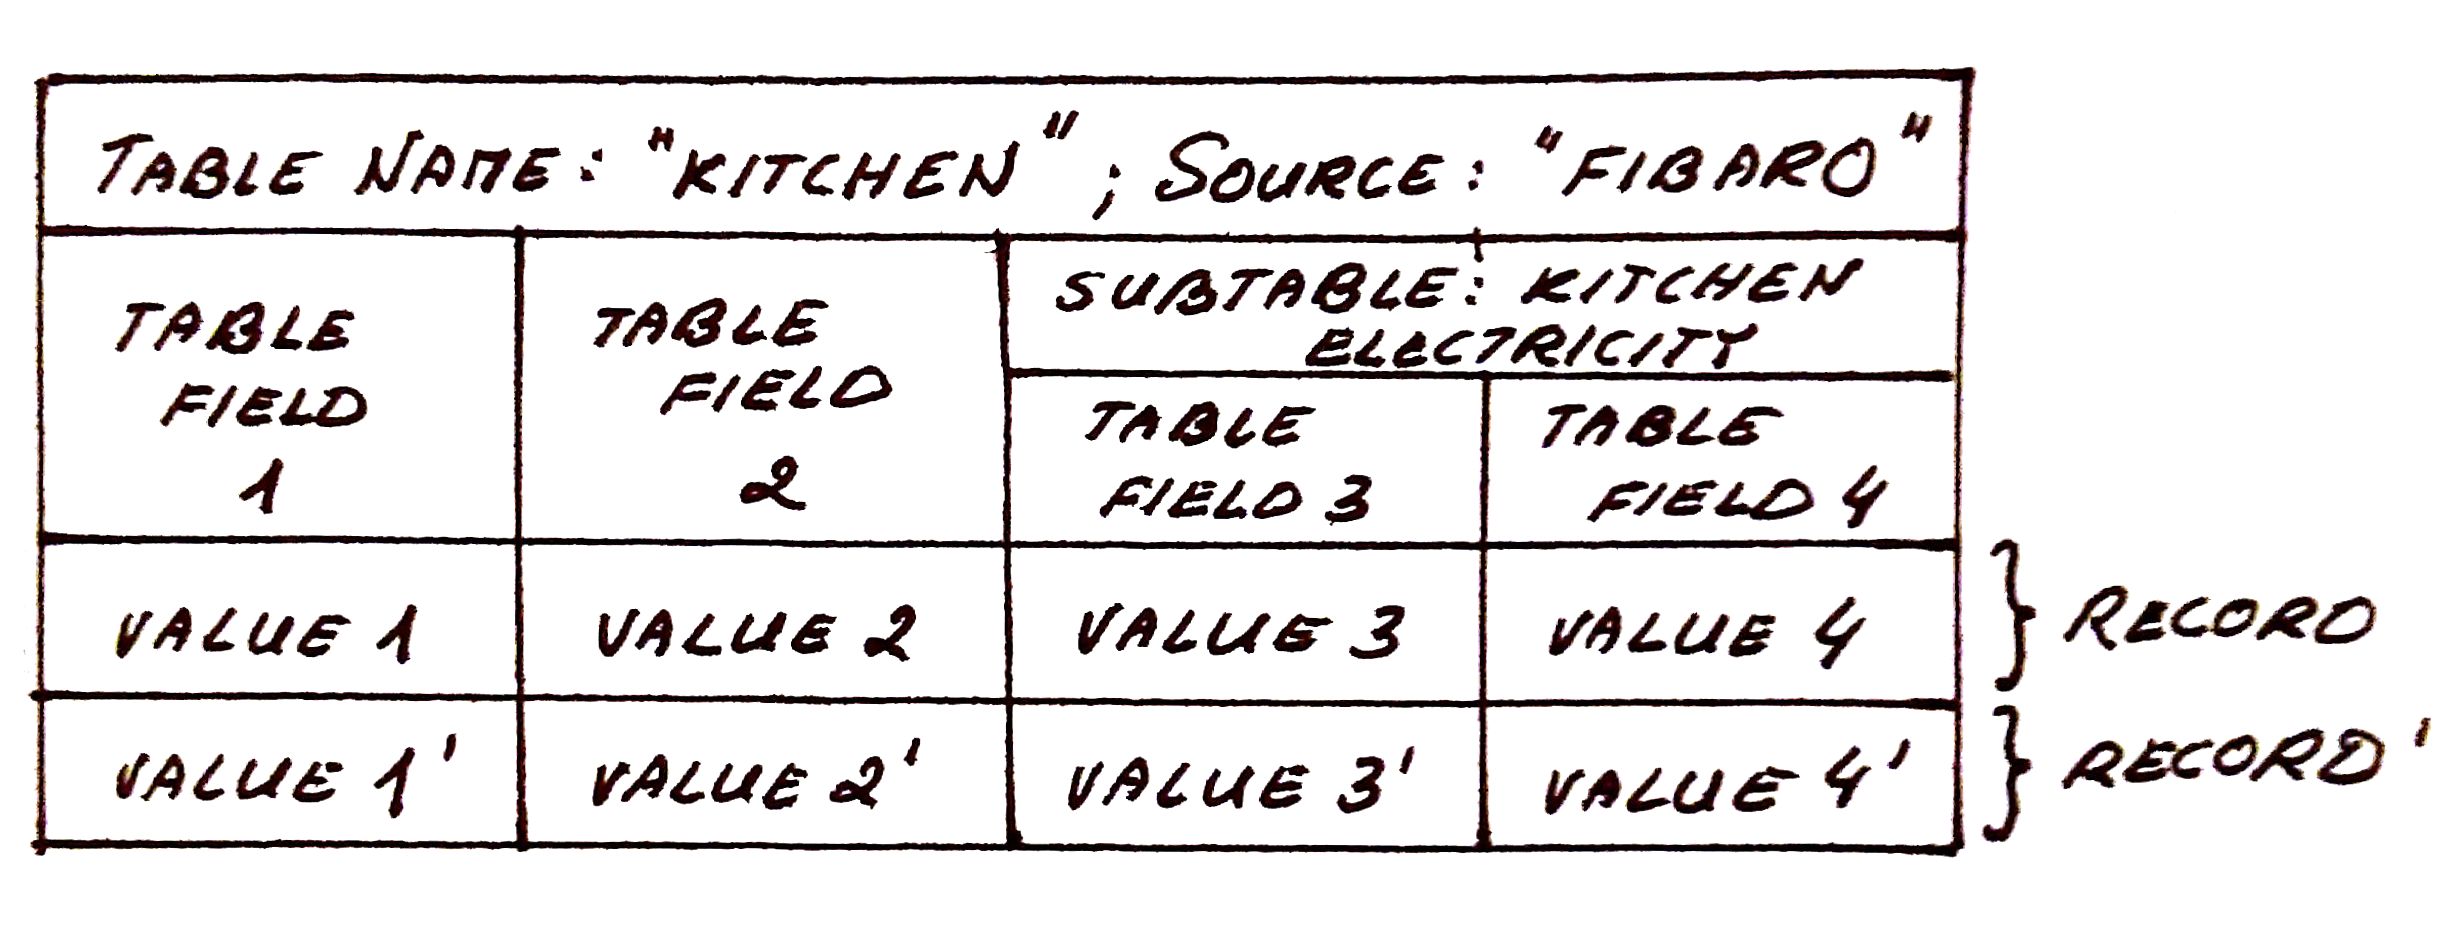 TABLE NAME: "KITCHEN"; SOURCE: "FIBARO"
TABLE FIELD 1
TABLE FIELD 2
SUBTABLE: KITCHEN
ELECTRICITY
TABLE FIELD 3
TABLE FIELD 4
VALUE 1 VALUE 2 VALUE 3 VALUE 4 } RECORD
VALUE 1' VALUE 2' VALUE 3' VALUE 4' } RECORD'